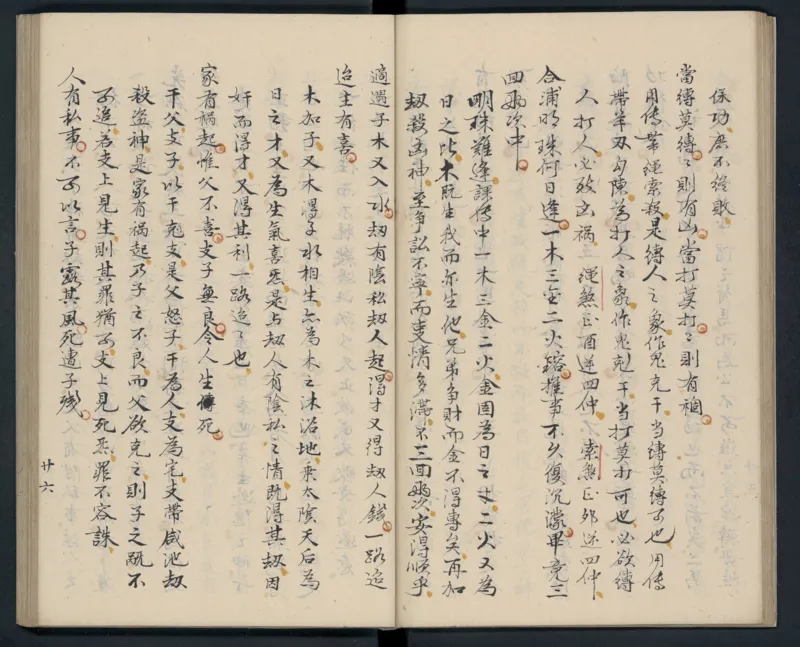 保功居不後敗
當縛莫縛〻則有凶當打莫打〻則有禍
用傳帶繩索殺是縛人之象作鬼克干當縛莫縛可也用傳
帶羊刃勾陳為打人之象作鬼剋干当打莫打可也必欲縛
人打人必致凶禍 繩煞正酉逆四仲 索煞正卯逆四仲
合浦明珠何日逢一木三金二火鎔推事不久復沉濛畢竟三
回女次中
明珠難逢課傳中一木三金二火金固為日之才二火又為
日之比木既生我而亦生他兄弟爭財而金不得專矣再加
劫殺凶神至爭訟不寧而吏情多滯不三回女次安得順乎
適遇子木又入水劫有陰私劫人起得才又得劫人錢一路迢
迢生有喜
木加子又木得子水相生亦為木之沐浴地乘太陰天后為
日之才又為生氣喜既是与劫人有陰私之情既得其劫因
奸而得才又得其利一路迢〻也
家有禍起惟父不喜支子無良令人生死
干父支子以干克支是父怒子干為人支為宅支帶咸池劫
殺盜神是家有禍起乃子之不良而父欲克之則子之既不
可追若支上見生則其罪猶可支上見死炁罪不容誅
人有私事不可以言子露其風死遺子殘
廿六